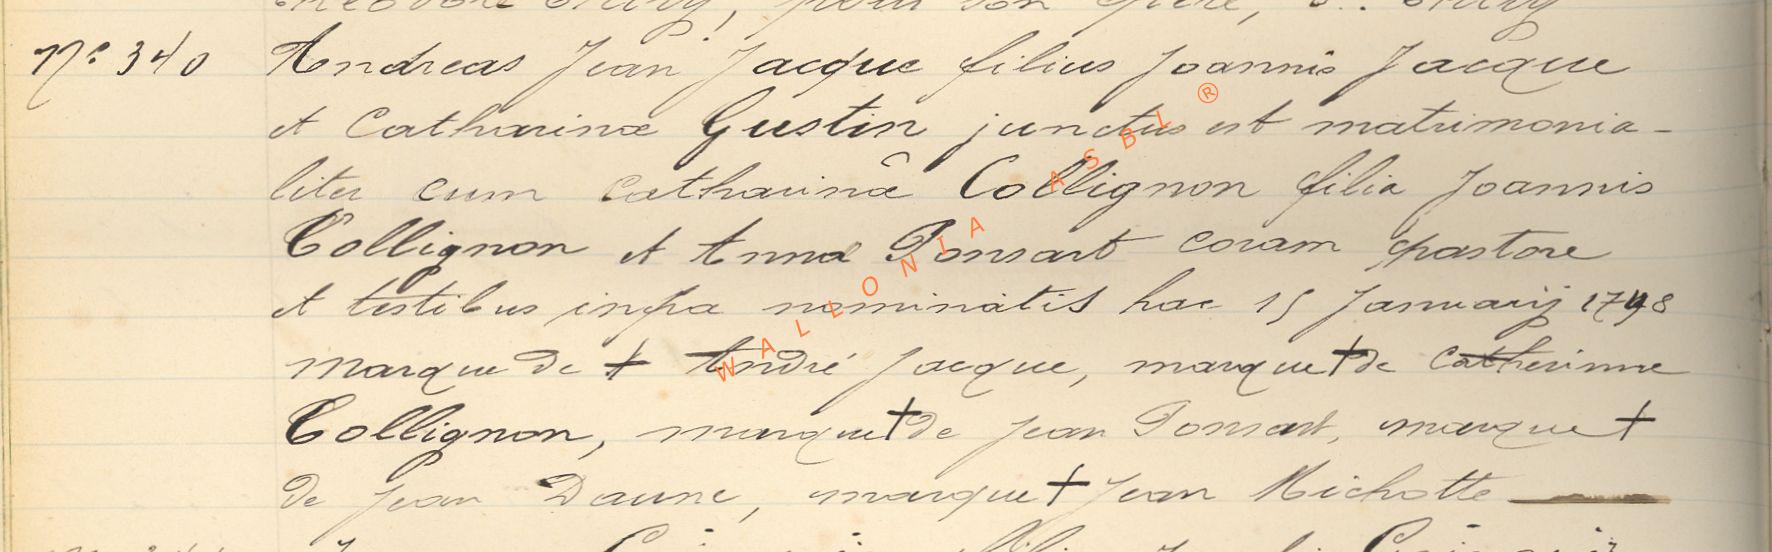 Nº 340 Andreas Jean Jacque filius Joannis Jacque
et Catharinæ Gustin junctus est matrimonia-
liter cum catharinâ Collignon filia Joannis
Collignon et Anna Ponsart coram pastore
et testibus infra nominatis hac 15 Januarij 1798
marque de + André Jacque, marque + de Catherinne
Collignon, marque + de jean Ponsart, marque +
de jean Daune, marque + Jean Michotte
WALLONIA ASBL ®